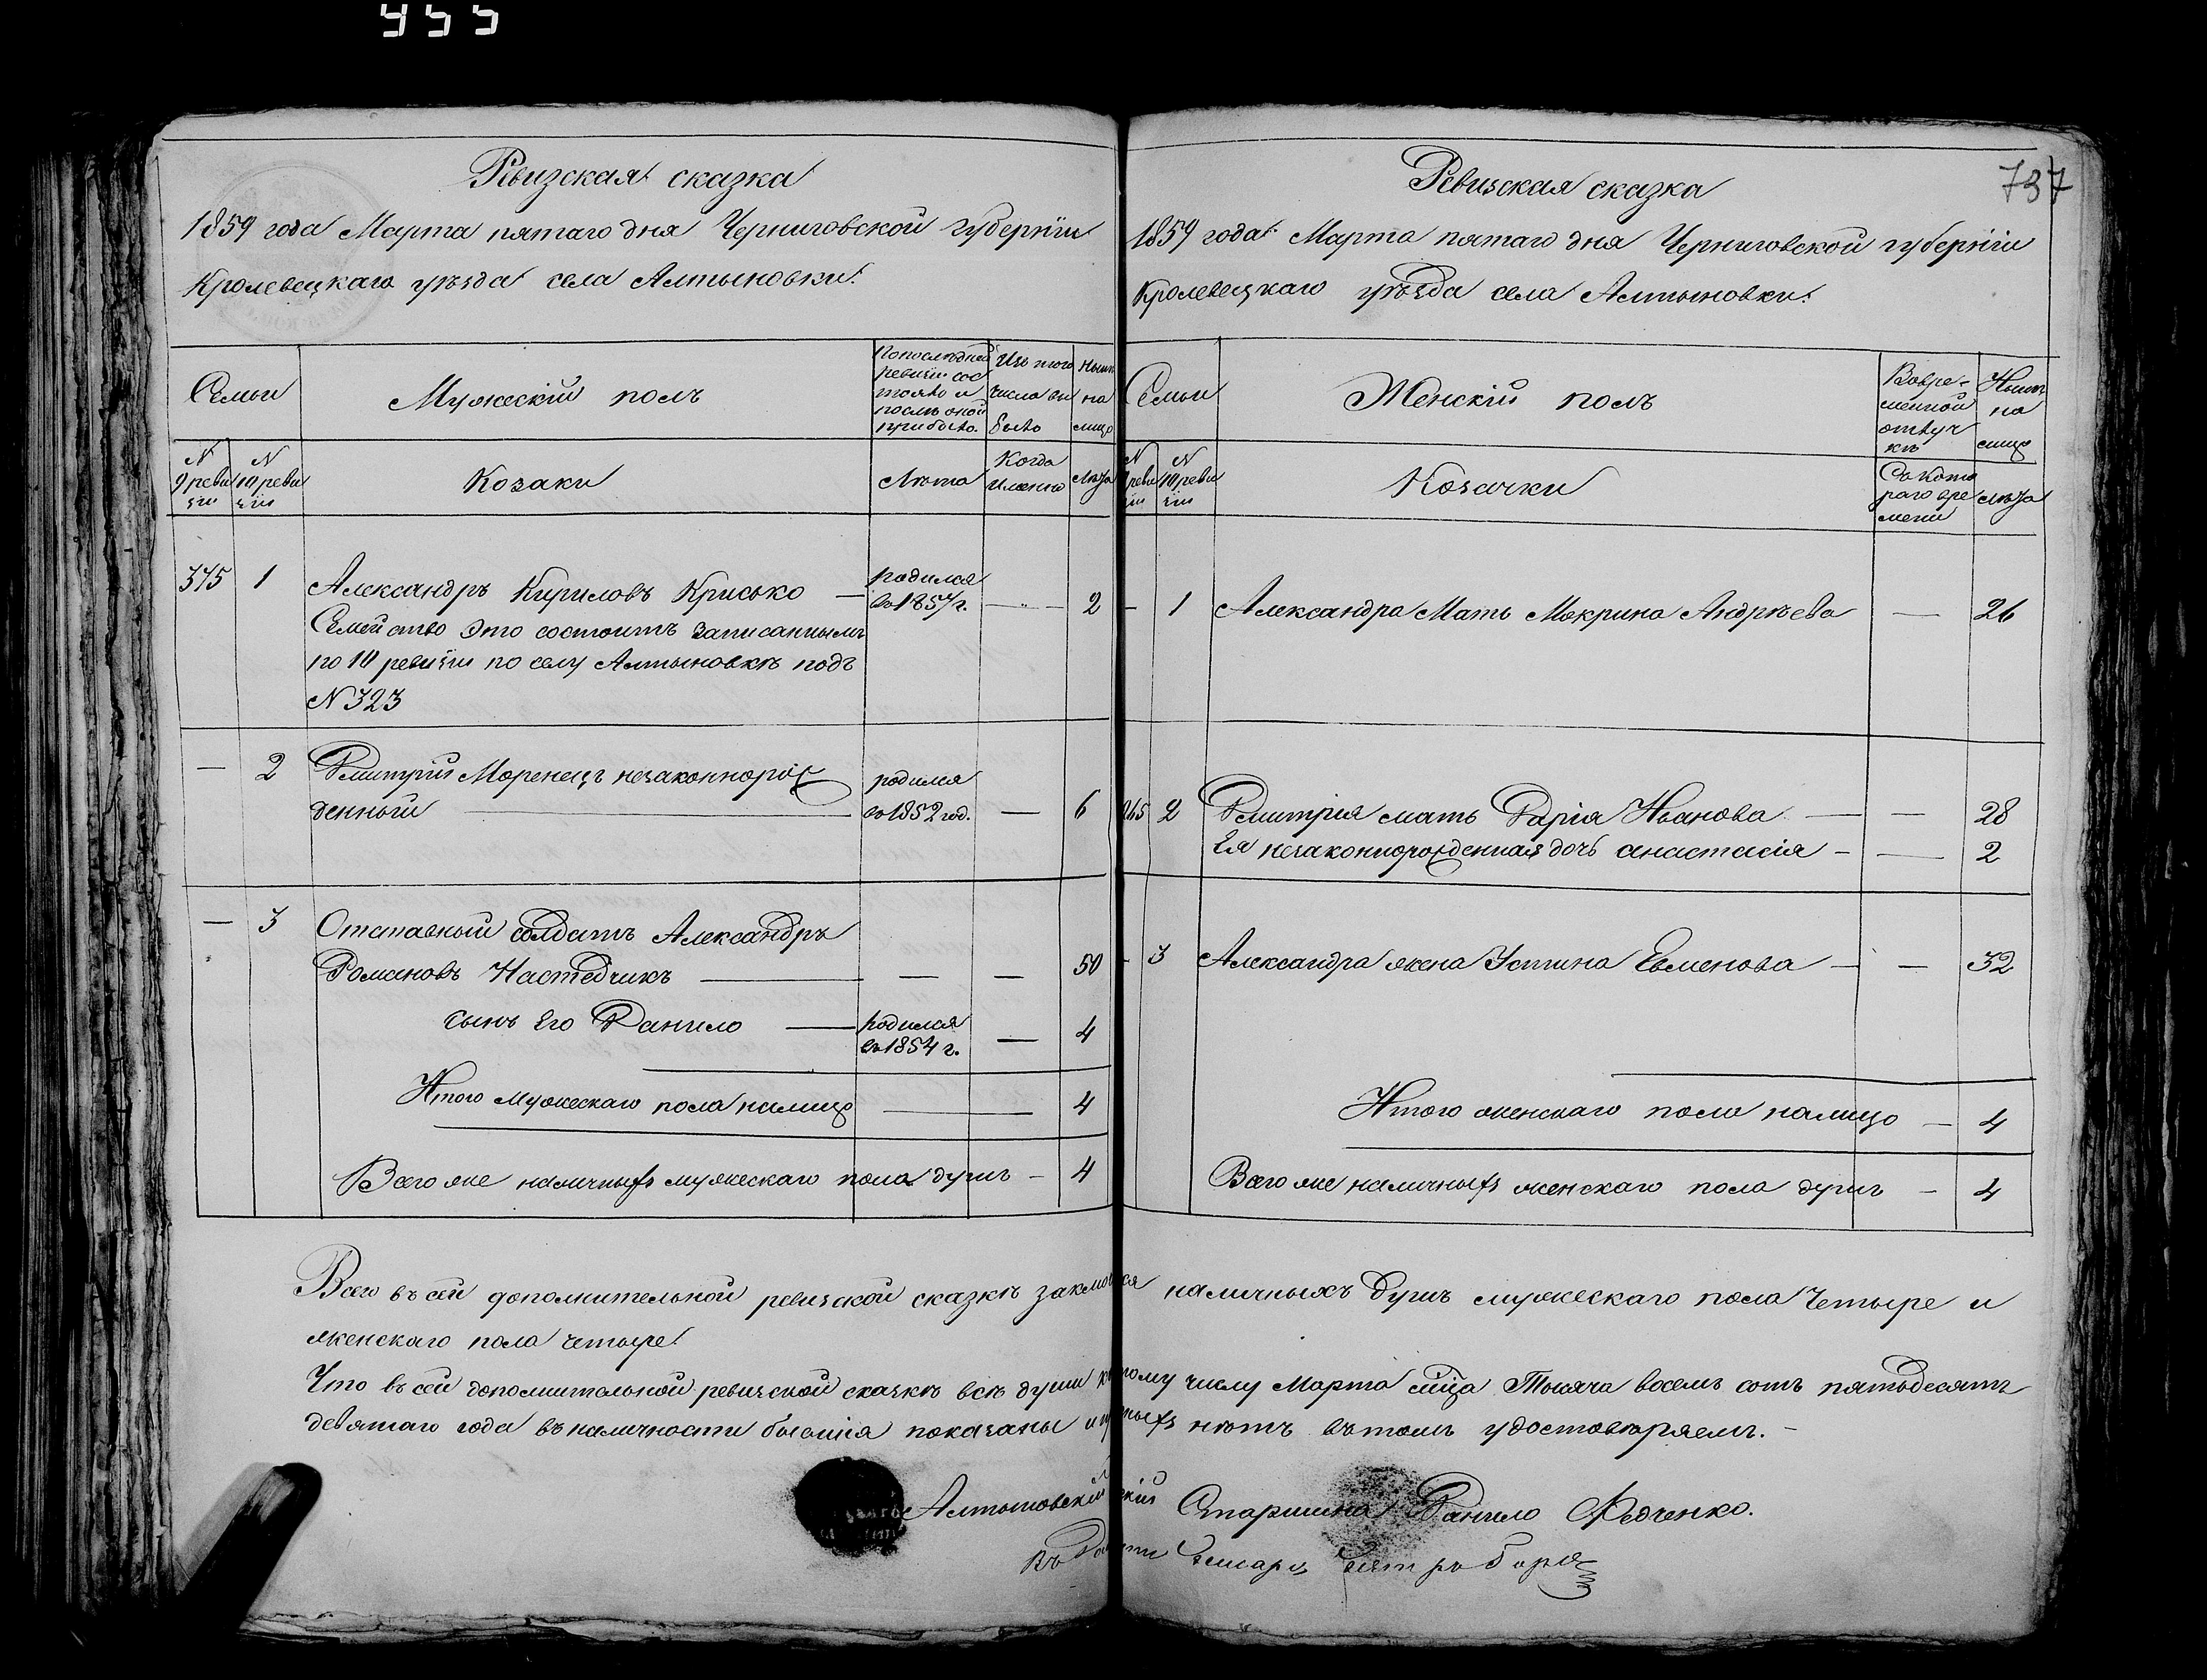 455
Ревизская сказка
1859 года Марта пятаго дня Черниговской губерніи
Кролевецкаго уѣзда села Алтыновки.
Семьи
Мужескій полъ
По последней ревизіи состояло и послѣ оной прибыло.
Изъ того числа выбыло
Нынѣ на лицо
N 9 ревизіи
N 10 ревизіи
Козаки
Лѣта
Когда именно
Лѣта
375 1 Александръ Кириловъ Крисько — родился въ 1857 г. — 2
Семейство это состоитъ записаннымъ
по 10 ревизіи по селу Алтыновкѣ подъ
N 323
— 2 Дмитрій Моренецъ незаконнорож
денный — родился въ 1852 год. — 6
— 3 Отставный солдатъ Александръ
Романовъ Настедчикъ — — — 50
сынъ Его Данило — родился въ 1854 г. — 4
Итого мужескаго пола налицо — 4
Всего же наличныхъ мужескаго пола душъ — 4
737
Ревизская сказка
1859 года Марта пятаго дня Черниговской губерніи
Кролевецкаго уѣзда села Алтыновки.
Семьи
Женскій полъ
Вовременной отлучкѣ
Нынѣ на лицо
N 9 ревизіи
N 10 ревизіи
Козачки
Съ котораго времени
лѣта
— 1 Александра Мать Мокрина Андрѣева — 26
2 Дмитрія мать Дарія Иванова — — 28
Ея незаконнорожденная дочь анастасія — — 2
— 3 Александра жена Устина Евменова — — 32
Итого женскаго пола налицо — 4
Всего же наличныхъ женскаго пола душъ — 4
Всего въ сей дополнительной ревизской сказкѣ наличныхъ душъ мужескаго пола четыре и
женскаго пола четыре.
Что въ сей дополнительной ревизской сказкѣ всѣ души числу Марта мца Тысяча восемь сотъ пятьдесятъ
девятаго года въ наличности бывшія показаны нѣтъ въ томъ удостовѣряемъ. —
Старшина Данило Федченко.